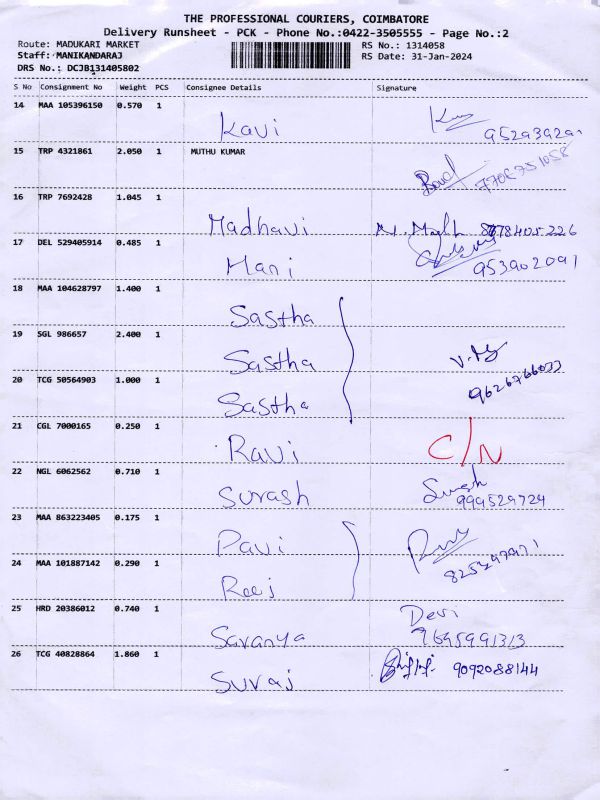 THE PROFESSIONAL COURIERS, COIMBATORE
Delivery Runsheet - PCK - Phone No.:0422-3505555 - Page No.:2
Route: MADUKARI MARKET RS No.: 1314058
Staff: MANIKANDARAJ RS Date: 31-Jan-2024
DRS No.: DCJB131405802
S No Consignment No Weight PCS Consignee Details Signature
14 MAA 105396150 0.570 1
Kavi
15 TRP 4321861 2.050 1 MUTHU KUMAR
16 TRP 7692428 1.045 1
Madhavi
17 DEL 529405914 0.485 1
Mani 953902091
18 MAA 104628797 1.400 1
Sastha
19 SGL 986657 2.400 1
Sastha
20 TCG 50564903 1.000 1
Sastha
21 CGL 7000165 0.250 1
Ravi C/N
22 NGL 6062562 0.710 1
Surash 999529729
23 MAA 863223405 0.175 1
24 MAA 101887142 0.290 1
25 HRD 20386012 0.740 1 Devi
Saranya 7695991313
26 TCG 40828864 1.860 1 9092088144
Suraj